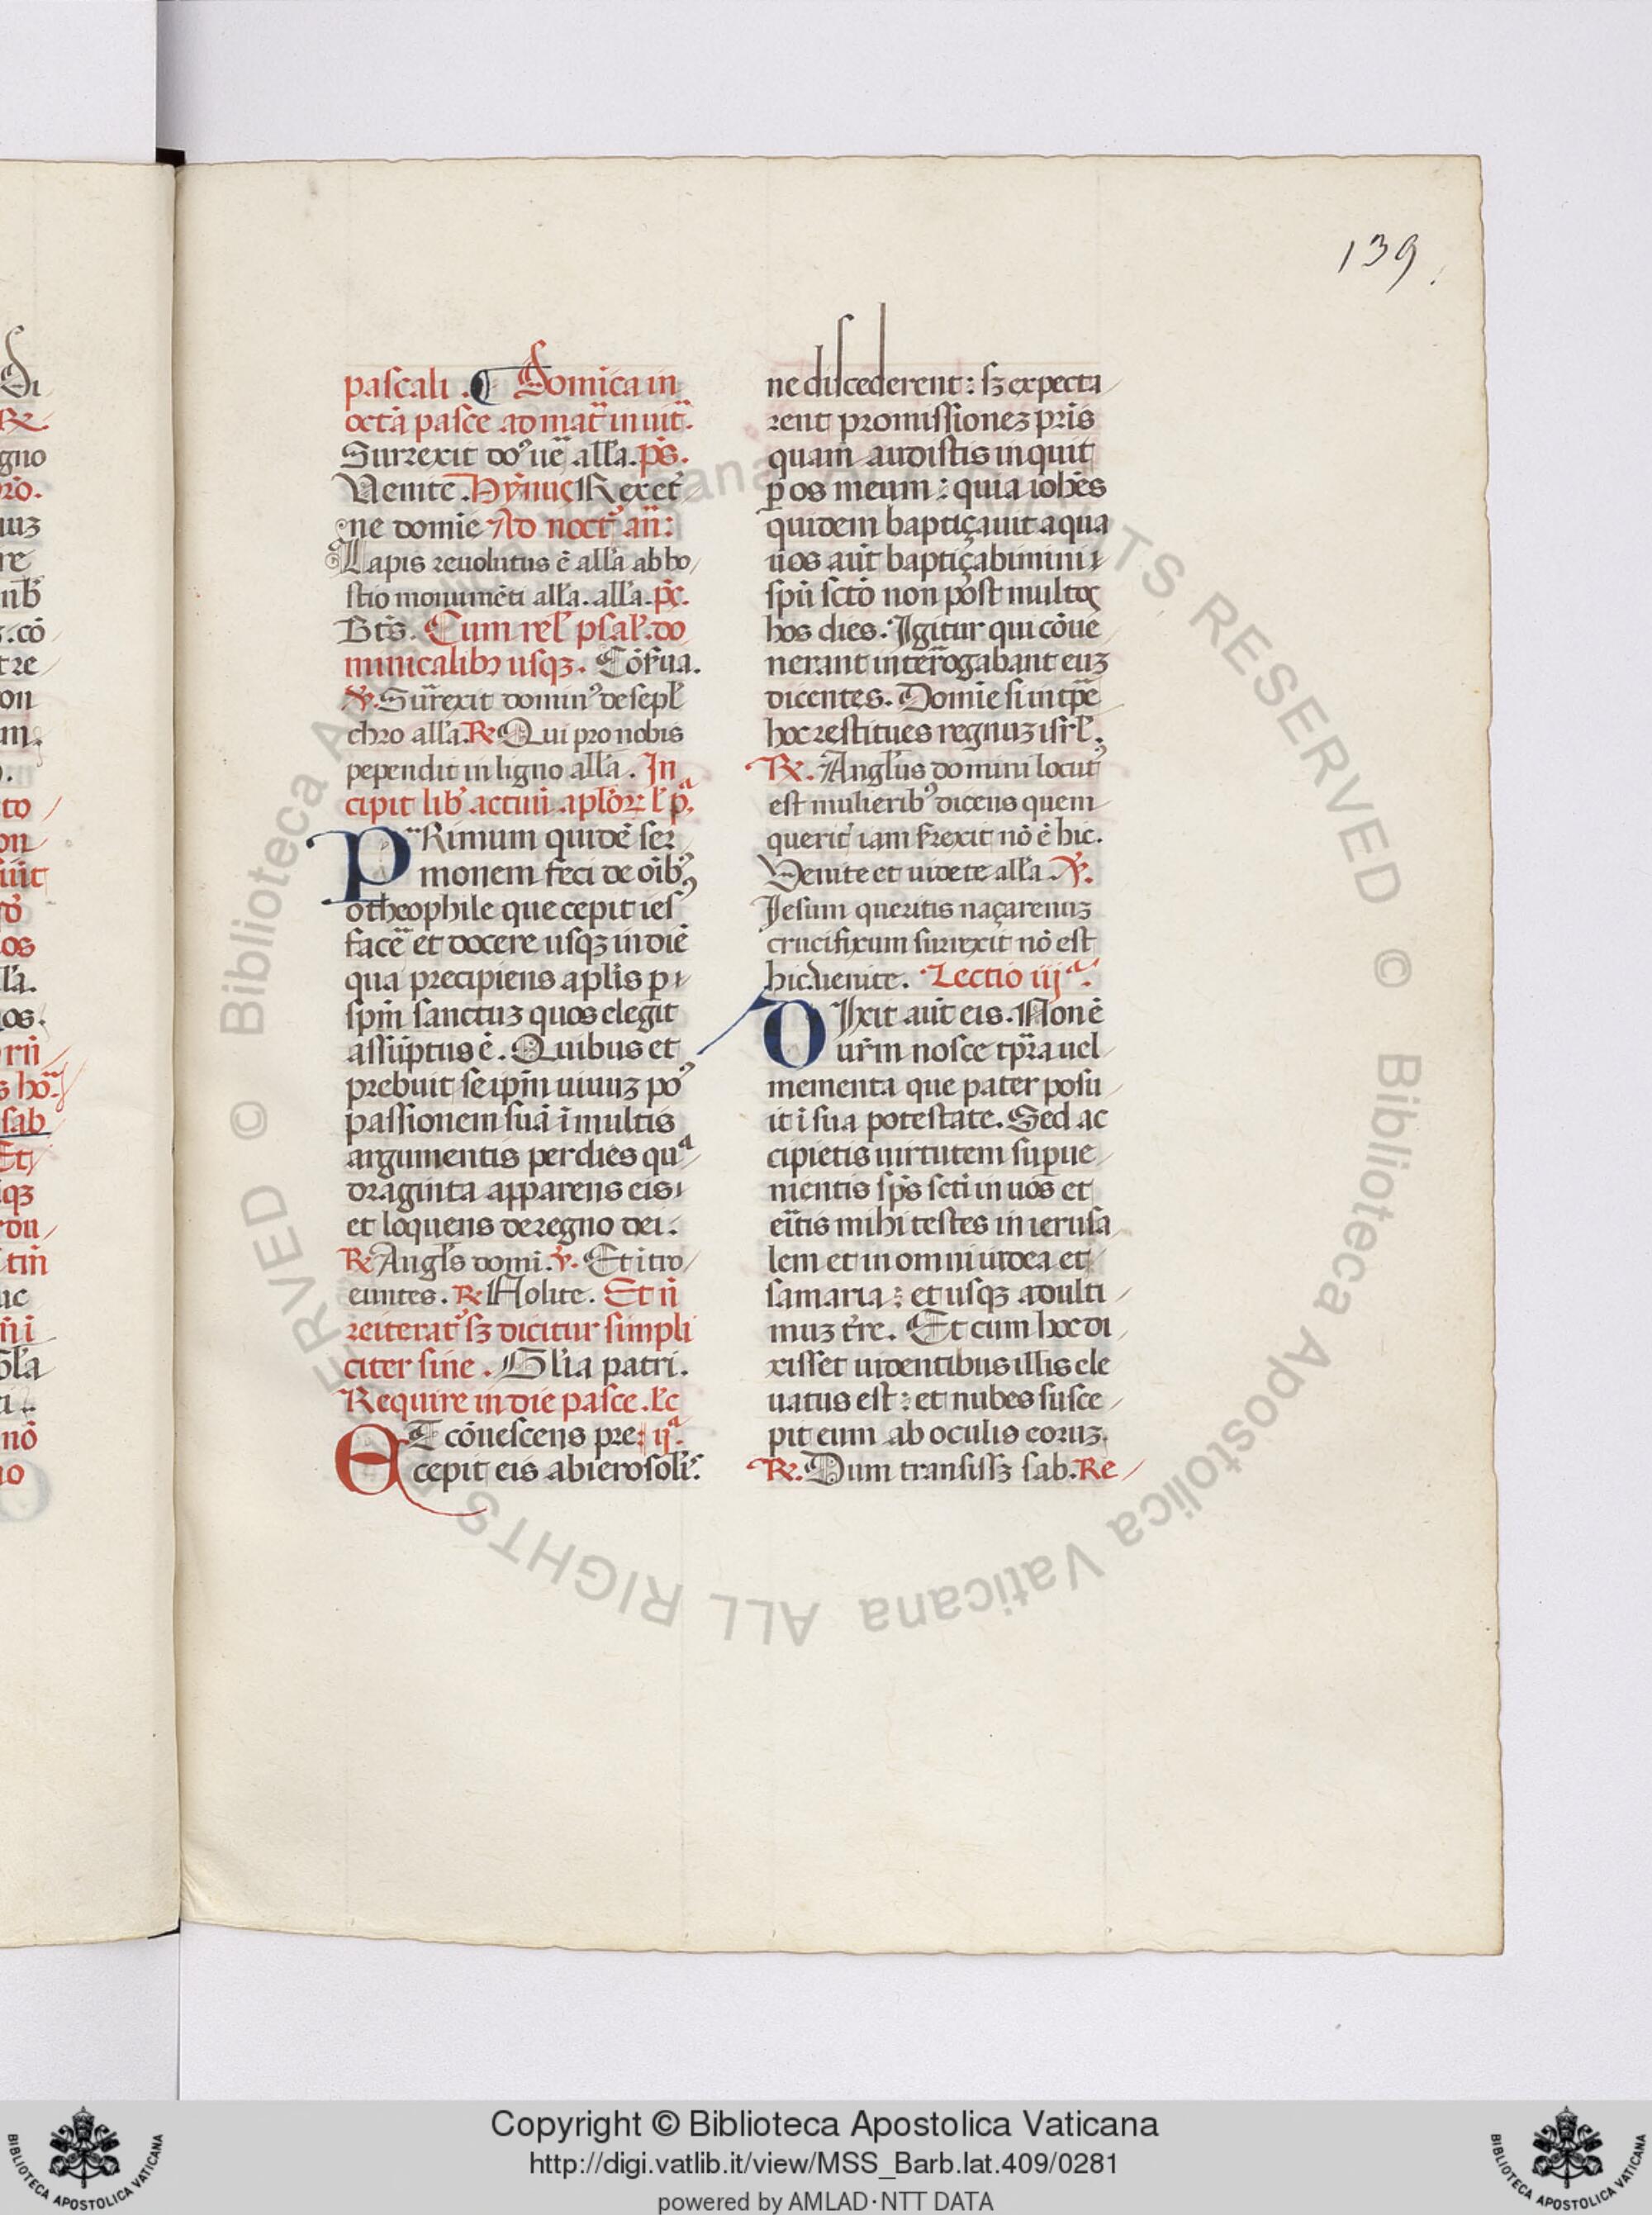 139.
pascali. ¶ Domica in
octā pasce ad mat̄ inuit̄.
Surrexit do᷒ ue᷒ all'a. p̄s.
Venite. Hȳnuc Rex et̄
ne domīe Ad noct᷒ an̄:
Lapis reuolutus ē all'a ab ho
stio monumēti all'a. all'a. p̄c.
Bt̄s. Cum rel' psal'. do
minicalibꝫ usqꝫ. Cōf̄ua.
℣. Surrexit domin᷒ de sepl'
chro all'a. ℟ Qui pro nobis
pependit in ligno all'a. In
cipit lib' actuū apl'oꝝ l' pª.
PRimum quidē ser
monem feci de oīb᷒
o theophile que cepit ies᷒
facē et docere usqꝫ in diē
qua precipiens apl'is ꝑ
sp̄m sanctuꝫ quos elegit
assūptus ē. Quibus et
prebuit seip̄m uiuuꝫ po᷒
passionem suā ī multis
argumentis per dies quª
draginta apparens eis
et loquens de regno dei.
℟ Angl's domī. ℣. Et itro
euntes. ℟ Nolite. Et n̄
reiterat᷒ sꝫ dicitur simpli
citer sine. Gl'ia patri.
Require in die pasce. l'c
ET cōuescens pre ijª.
cepit eis ab ierosoli᷒
ne discederent: sꝫ expecta
rent promissioneꝫ pr̄is
quam audistis inquit
ꝑ os meum: quia ioh̄es
quidem baptiçauit aqua
uos aūt baptiçabimini
sp̄ū sctō non post multoc
hos dies. Igitur qui cōue
nerant interrogabant euꝫ
dicentes. Domīe si in tp̄e
hoc restitues regnuꝫ isr̄l'.
℟. Angl'us domini locut᷒
est mulierib᷒ dicens quem
querit᷒ iam surrexit nō ē hic.
Venite et uidete all'a ℣.
Jesum queritis naçarenuꝫ
crucifixum surrexit nō est
hic. uenite. Lectio iijª.
DIxit aūt eis. Non ē
ur̄m nosce tp̄ra uel
mementa que pater posu
it ī sua potestate. Sed ac
cipietis uirtutem suꝑue
nientis sp̄s scti in uos et
eritis mihi testes in ierusa
lem et in omni iudea et
samaria: et usqꝫ ad ulti
muꝫ t̄re. Et cum hoc di
xisset uidentibus illis ele
uatus est: et nubes susce
pit eum ab oculis eoruꝫ.
℟. Dum transissꝫ sab. Re
Copyright © Biblioteca Apostolica Vaticana
http://digi.vatlib.it/view/MSS_Barb.lat.409/0281
powered by AMLAD·NTT DATA